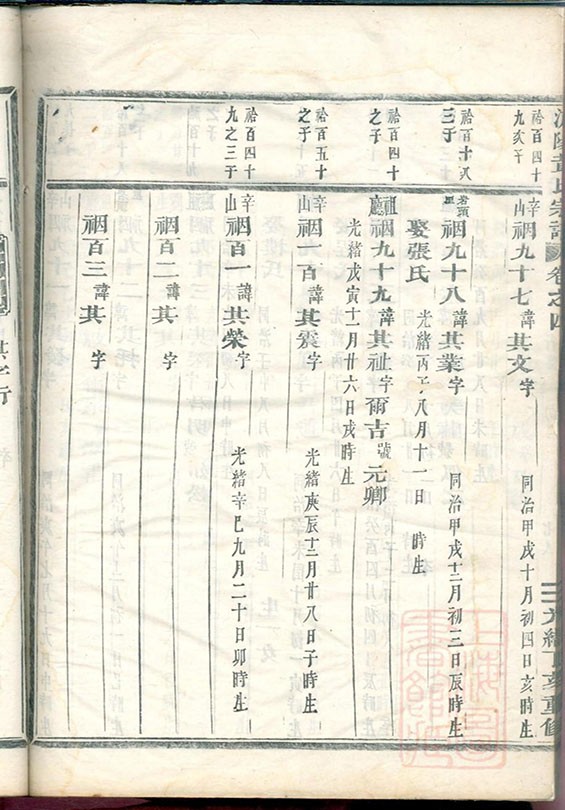 氏宗譜 卷之四
光緒丁亥重修
祫百四十
九亥子
辛山
祻九十七 諱其文 字
同治甲戌十月初四日亥時生
祫百十八
三子
祻九十八 諱其業 字
同治甲戌十二月初三日辰時生
娶張氏
光緒丙子八月十一日 時生
祫百四十
之子
祖廳
祻九十九 諱其祉 字爾吉 號元卿
光緒戊寅十一月廿六日戌時生
祫百五十
之子
辛山
祻一百 諱其 字
光緒庚辰十二月廿八日子時生
祫百四十
九之三子
辛山
祻百一 諱其榮 字
光緒辛巳九月二十日卯時生
祻百二 諱其 字
祻百三 諱其 字
其字行